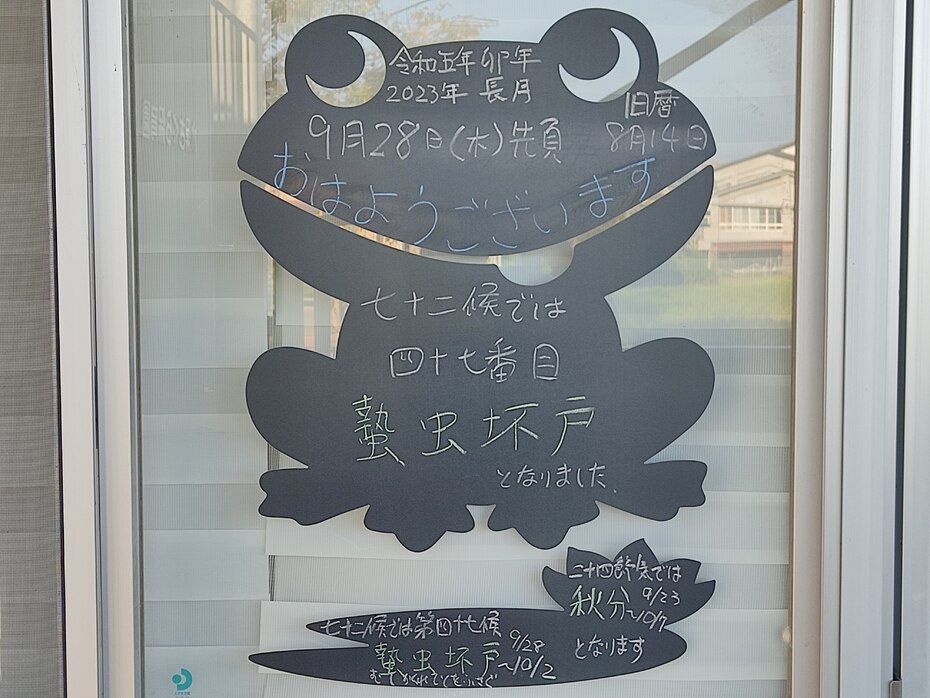 令和五年 卯年
2023年 長月
旧暦
9月28日(木)先負
8月14日
おはようございます
七十二候では
四十七番目
蟄虫坏戸
となりました.
二十四節気では
秋分 9/23
~10/7
となります
七十二候では第四十七候
蟄虫坏戸 9/28
~10/2
むしかくれてとをふさぐ